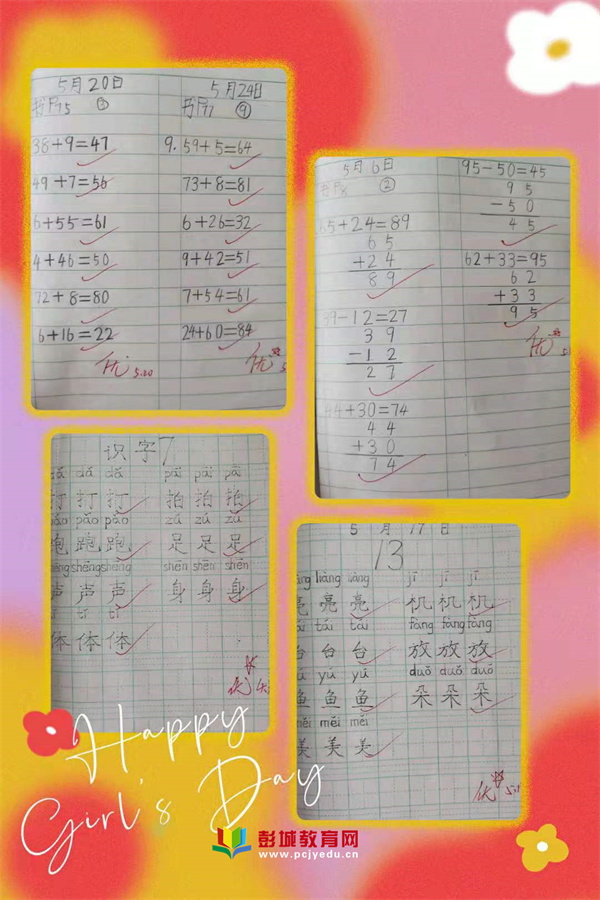 5月20日
38+9=47
49+7=56
6+55=61
4+46=50
72+8=80
6+16=22
优 5.20
5月24日
9. 59+5=64
73+8=81
6+26=32
9+42=51
7+54=61
24+60=84
优
5月6日
②
65+24=89
65
+24
89
39-12=27
39
-12
27
44+30=74
44
+30
74
95-50=45
95
-50
45
62+33=95
62
+33
95
优
识字7
dǎ dǎ dǎ
打打打
pǎo pǎo pǎo
跑跑跑
shēng shēng shēng
声声声
tǐ tǐ tǐ
体体体
pāi pāi pāi
拍拍拍
zú zú zú
足足足
shēn shēn shēn
身身身
优
5月17日
13
liàng liàng liàng
亮亮亮
tái tái tái
台台台
yú yú yú
鱼鱼鱼
měi měi měi
美美美
jī jī jī
机机机
fàng fàng fàng
放放放
duǒ duǒ duǒ
朵朵朵
优
Happy
Girl's Day
彭城教育网
www.pcjyedu.cn